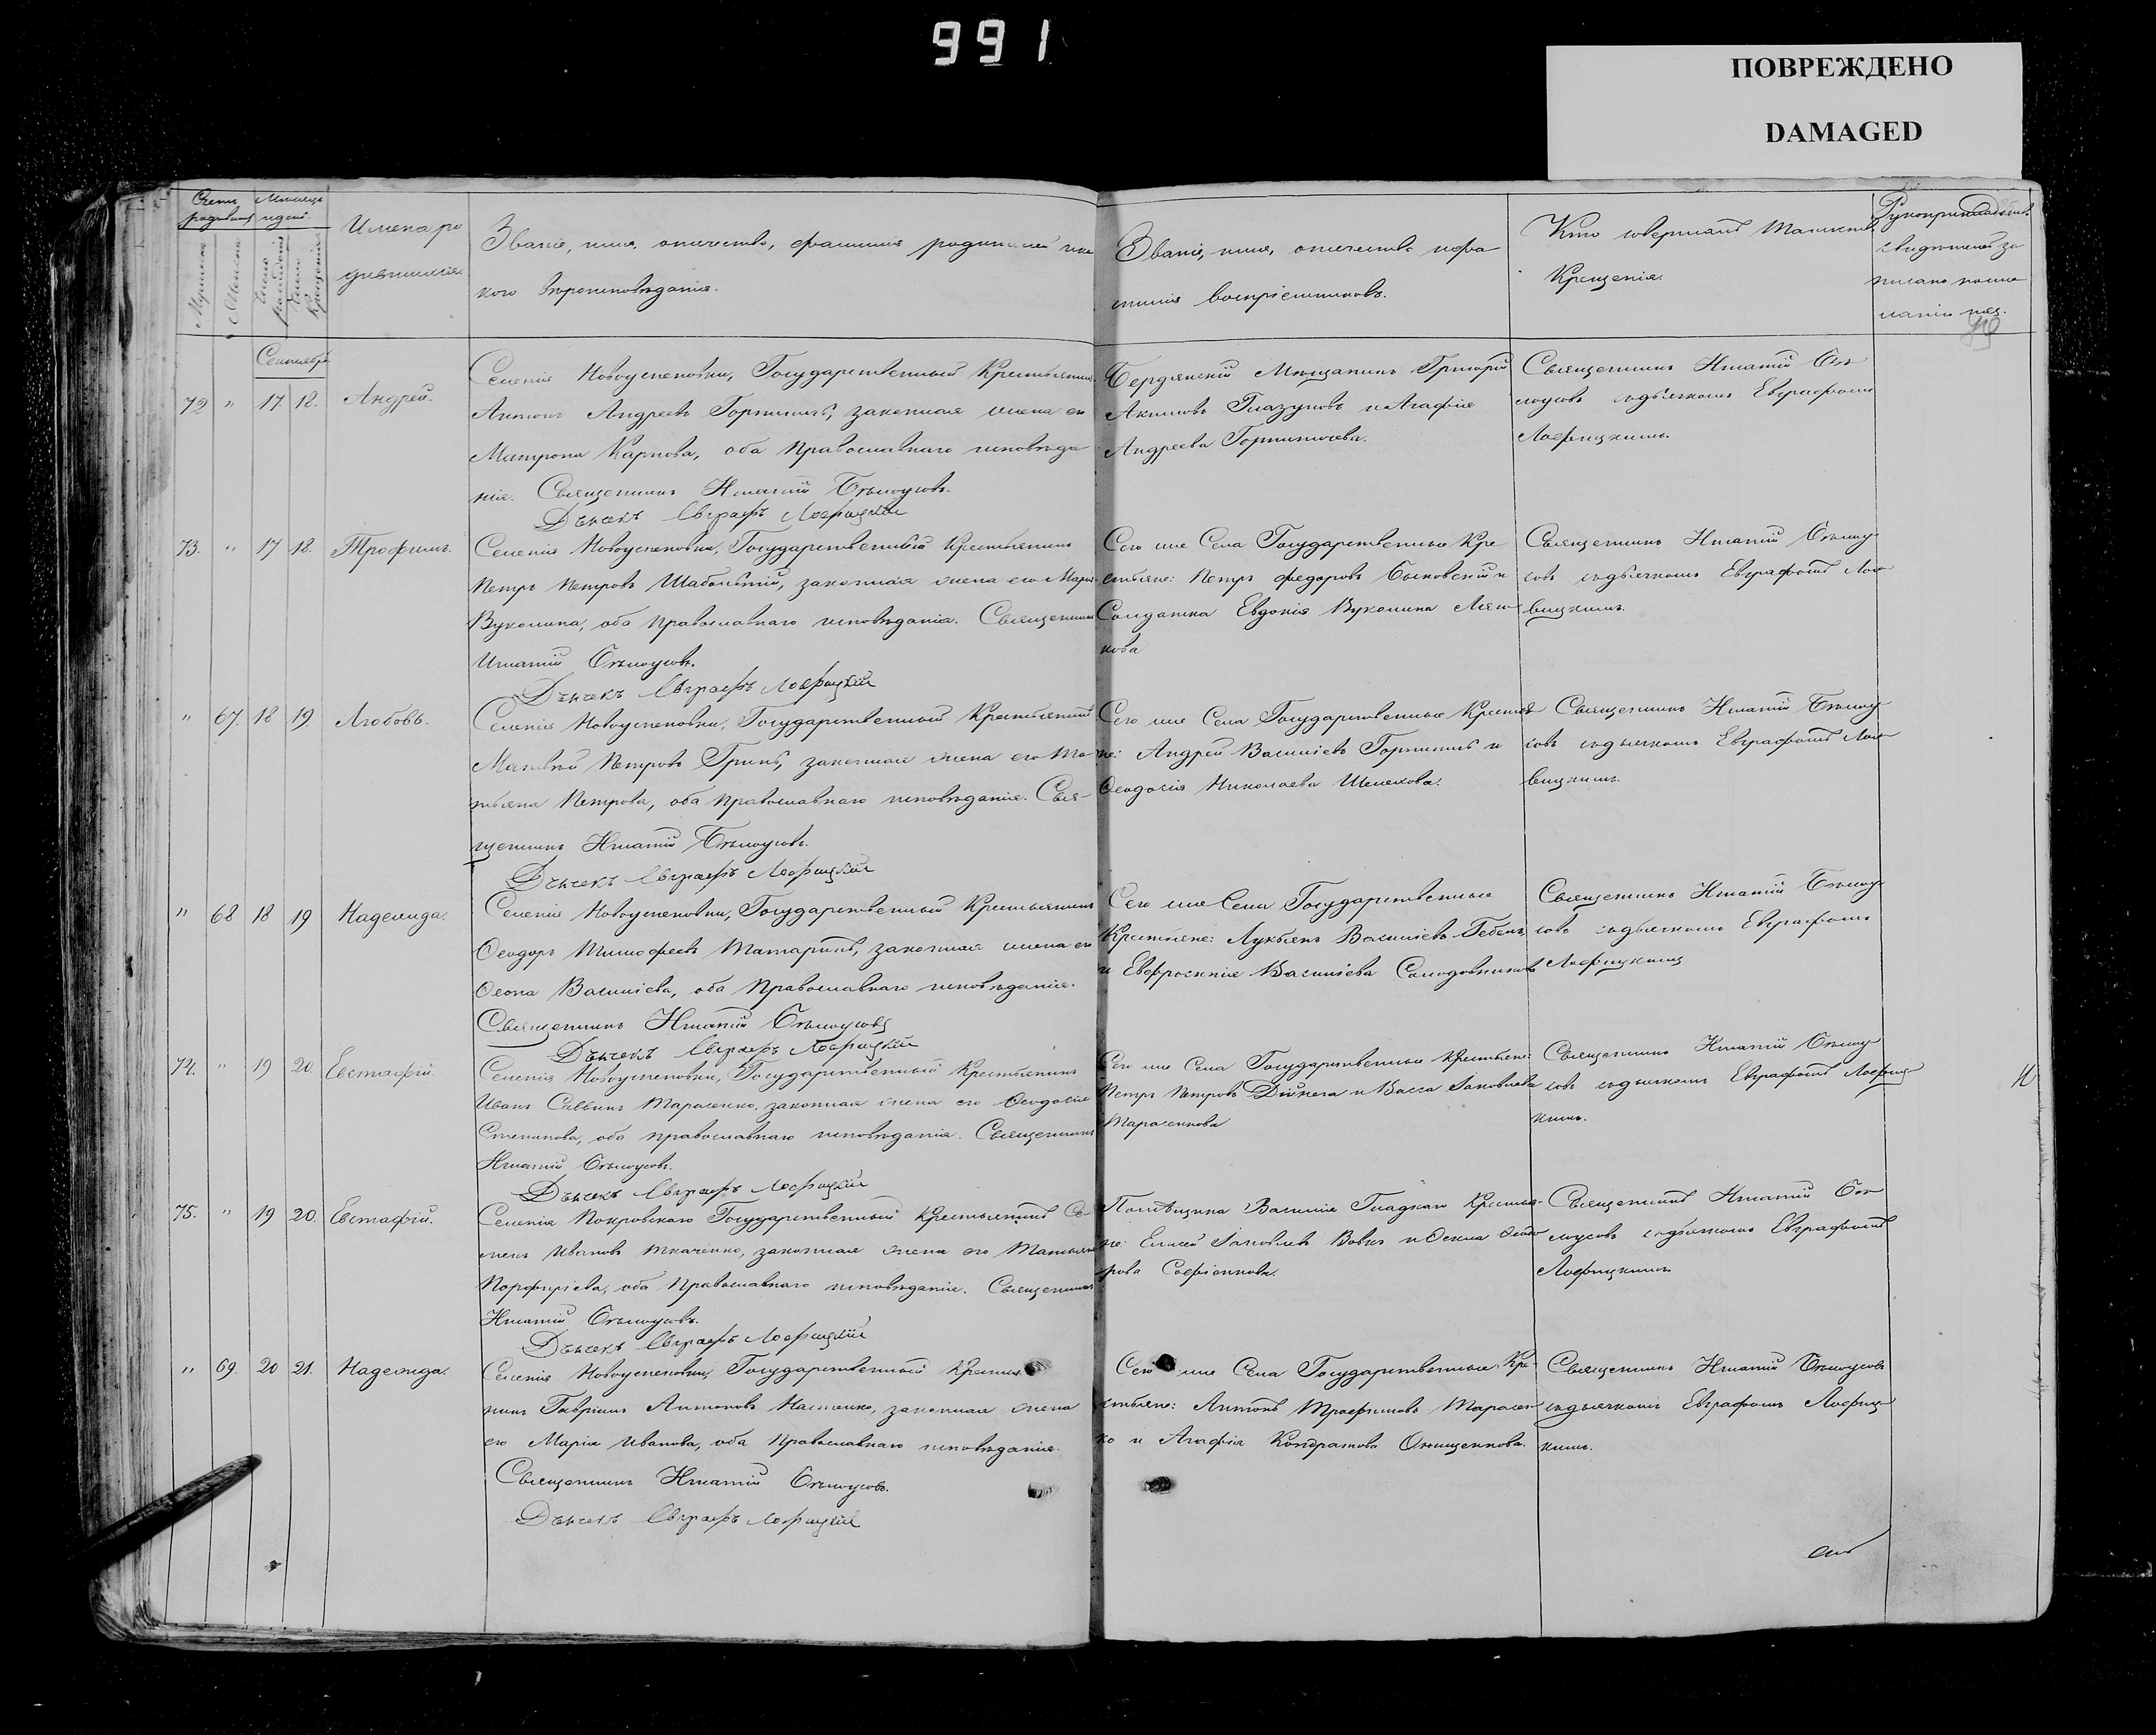 991
ПОВРЕЖДЕНО
DAMAGED
Счетъ родившихся
Мужеска
Женска
Мѣсяцъ и день
Число рожденія
Число Крещенія
Имена ро
дившихся.
Званіе, имя, отчество, фамилія родителей и ка
кого вѣроисповѣданія.
Званіе, имя, отчество и фа
милія воспріемниковъ.
Кто совершалъ Таинство
Крещенія.
Рукоприкладство
свидѣтелей за
писано по же
ланію
Сентябрь
72 " 17. 18. Андрей.
Селенія Новоуспеновки, Государственный Крестьянинъ
Антонъ Андреевъ Горпиничъ, законная жена его
Матрона Карпова, оба Православнаго исповѣда
нія. Священникъ Игнатій Бѣлоусовъ.
Дьячекъ Евграфъ Лофицкій
Бердянскій Мѣщанинъ Григорій
Акимовъ Глазуновъ и Агафія
Андреева Горпиничева.
Священникъ Игнатій Бѣ
лоусовъ съ дьячкомъ Евграфомъ
Лофицкимъ.
73. " 17 18. Трофимъ.
Селенія Новоуспеновки, Государственный Крестьянинъ
Петръ Петровъ законная жена его Марія
Вуколина, оба православнаго исповѣданія. Священникъ
Игнатій Бѣлоусовъ.
Дьячекъ Евграфъ Лофицкій
Сего же Села Государственные Кре
стьяне: Петръ Федоровъ Быковскій и
Солдатка Евдокія Вуколина Ляш
кова
Священникъ Игнатій Бѣлоу
совъ съ дьячкомъ Евграфомъ Ло
вицкимъ.
" 67. 18 19 Любовь.
Селенія Новоуспеновки, Государственный Крестьянинъ
Матвѣй Петровъ Гринь, законная жена его Та
тьяна Петрова, оба православнаго исповѣданія. Свя-
щенникъ Игнатій Бѣлоусовъ.
Дьячекъ Евграфъ Лофицкій
Сего же Села Государственные Крестья
не: Андрей Василіевъ Горпиничъ и
Феодосія Николаева Шелехова.
Священникъ Игнатій Бѣлоу
совъ съ дьячкомъ Евграфомъ Ло
вицкимъ.
" 68 18 19 Надежда.
Селенія Новоуспеновки, Государственный Крестьянинъ
Феодоръ Тимофеевъ Татаринъ, законная жена его
Феона Василіева, оба Православнаго исповѣданія.
Священникъ Игнатій Бѣлоусовъ
Дьячекъ Евграфъ Лофицкій
Сего же Села Государственные
Крестьяне: Лукьянъ Василіевъ
и Евфросинія Василіева
Священникъ Игнатій Бѣлоу
совъ съ дьячкомъ Евграфомъ
Лофицкимъ
74. " 19 20. Евстафій.
Селенія Новоуспеновки, Государственный Крестьянинъ
Иванъ Саввинъ Тарасенко, законная жена его Феодосія
Степанова, оба православнаго исповѣданія. Священникъ
Игнатій Бѣлоусовъ.
Дьячекъ Евграфъ Лофицкій
Сего же Села Государственные крестьяне:
Петръ Петровъ и Васса Іаковлева
Тарасенкова
Священникъ Игнатій Бѣлоу
совъ съ дьячкомъ Евграфомъ Лофиц
кимъ.
75. " 19 20. Евстафій.
Селенія Покровскаго Государственный Крестьянинъ Се
менъ Ивановъ Ткаченко, законная жена его Татьяна
Порфиріева, оба Православнаго исповѣданія. Священникъ
Игнатій Бѣлоусовъ.
Дьячекъ Евграфъ Лофицкій
Помѣщика Василія Гладкаго Крестья-
не: Елисей Іаковлевъ Вовкъ и Фекла Фейдо
рова Софіенкова.
Священникъ Игнатій Бѣ
лоусовъ съ дьячкомъ Евграфомъ
Лофицкимъ
" 69. 20 21. Надежда.
Селенія Новоуспеновки, Государственный Крестья
нинъ Гавріилъ Антоновъ Настенко, законная жена
его Марія Иванова, оба Православнаго исповѣданія.
Священникъ Игнатій Бѣлоусовъ.
Дьячекъ Евграфъ Лофицкій
Сего же Села Государственные Кре-
стьяне: Антонъ Трофимовъ Тарасен
ко и Агафія Кондратова Онищенкова.
Священникъ Игнатій Бѣлоусовъ
съ дьячкомъ Евграфомъ Лофиц-
кимъ.